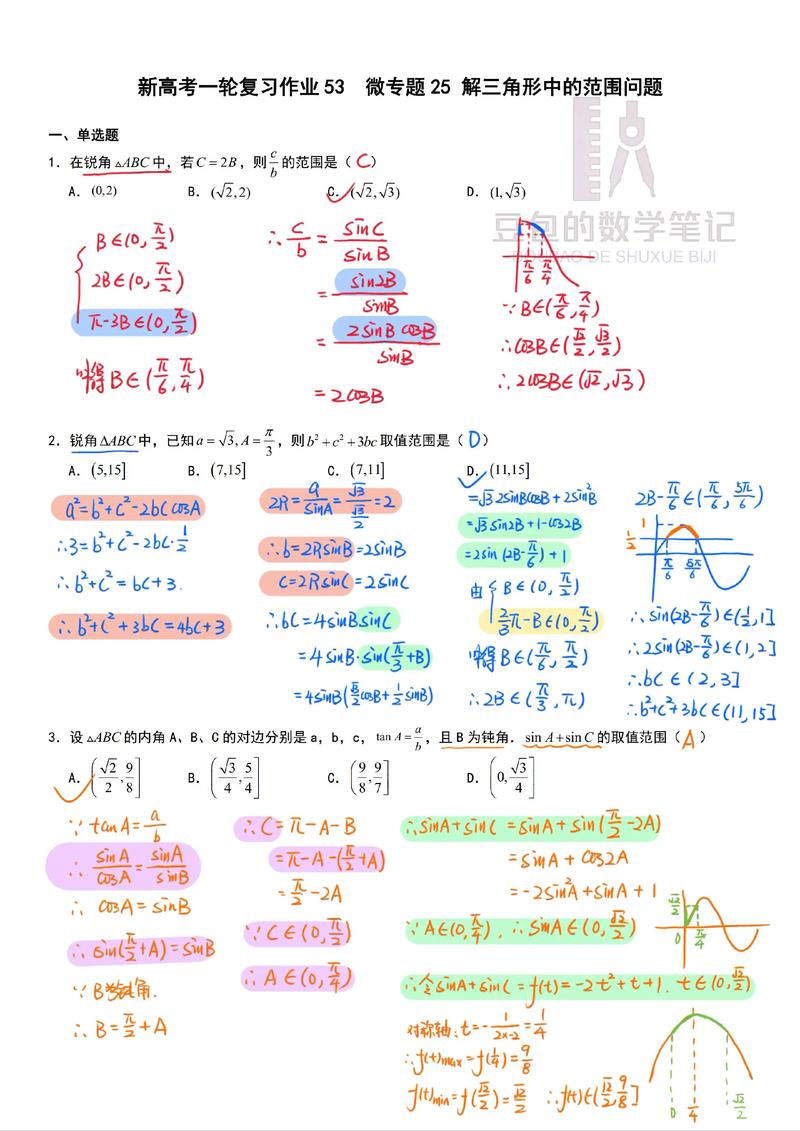 新高考一轮复习作业 53 微专题 25 解三角形中的范围问题
一、单选题
1. 在锐角 △ABC 中, 若 C = 2B , 则 c/b 的范围是 ( C )
A. (0,2) B. (√2,2) C. (√2, √3) D. (1, √3)
豆包的数学笔记
DOUBAO DE SHUXUE BIJI
B∈(0, π/2)
2B∈(0, π/2)
π-3B∈(0, π/2)
解得 B∈(π/6, π/4)
∴ c/b = sinC/sinB
= sin2B/sinB
= 2sinBcosB/sinB
= 2cosB
π/6 π/4
∵ B∈(π/6, π/4)
∴ cosB∈(√2/2, √3/2)
∴ 2cosB∈(√2, √3)
2. 锐角 ΔABC 中, 已知 a = √3, A = π/3 , 则 b²+c²+3bc 取值范围是 ( D )
A. (5,15] B. (7,15] C. (7,11] D. (11,15]
a²=b²+c²-2bccosA
∴3=b²+c²-2bc·1/2
∴b²+c²=bc+3.
∴b²+c²+3bc=4bc+3
2R=a/sinA=√3/(√3/2)=2
∴b=2RsinB=2sinB
c=2RsinC=2sinC
∴bc=4sinBsinC
=4sinB·sin(π/3+B)
=4sinB(√3/2cosB+1/2sinB)
=√3·2sinBcosB+2sin²B
=√3sin2B+1-cos2B
=2sin(2B-π/6)+1
由 B∈(0, π/2)
2/3π-B∈(0, π/2)
解得 B∈(π/6, π/2)
∴2B∈(π/3, π)
2B-π/6∈(π/6, 5π/6)
1
1/2
π/6 5π/6
∴sin(2B-π/6)∈(1/2,1]
∴2sin(2B-π/6)∈(1,2]
∴bc∈(2,3]
∴b²+c²+3bc∈(11,15]
3. 设 △ABC 的内角 A、B、C 的对边分别是 a, b, c, tan A = a/b , 且 B 为钝角. sin A+sin C 的取值范围 ( A )
A. (√2/2, 9/8] B. (√3/4, 5/4] C. (9/8, 9/7] D. (0, √3/4]
∵ tanA=a/b
∴ sinA/cosA=sinA/sinB
∴ cosA=sinB
∴ sin(π/2+A)=sinB
∵ B为钝角.
∴ B=π/2+A
∴C=π-A-B
=π-A-(π/2+A)
=π/2-2A
∵C∈(0, π/2)
∴A∈(0, π/4)
∴sinA+sinC=sinA+sin(π/2-2A)
=sinA+cos2A
=-2sin²A+sinA+1
∵A∈(0, π/4), ∴sinA∈(0, √2/2)
√2/2
0 π/4
∴令sinA+sinC=f(t)=-2t²+t+1. t∈(0, √2/2)
对称轴: t=-1/(2×-2)=1/4
∴f(t)max=f(1/4)=9/8
f(t)min=f(√2/2)=√2/2 ∴f(t)∈(√2/2, 9/8]
0 1/4 √2/2